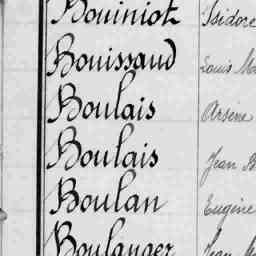 Bouiniot Isidore
Bouissaud Louis
Boulais Arsène
Boulais Jean
Boulan Eugène
Boulanger Jean